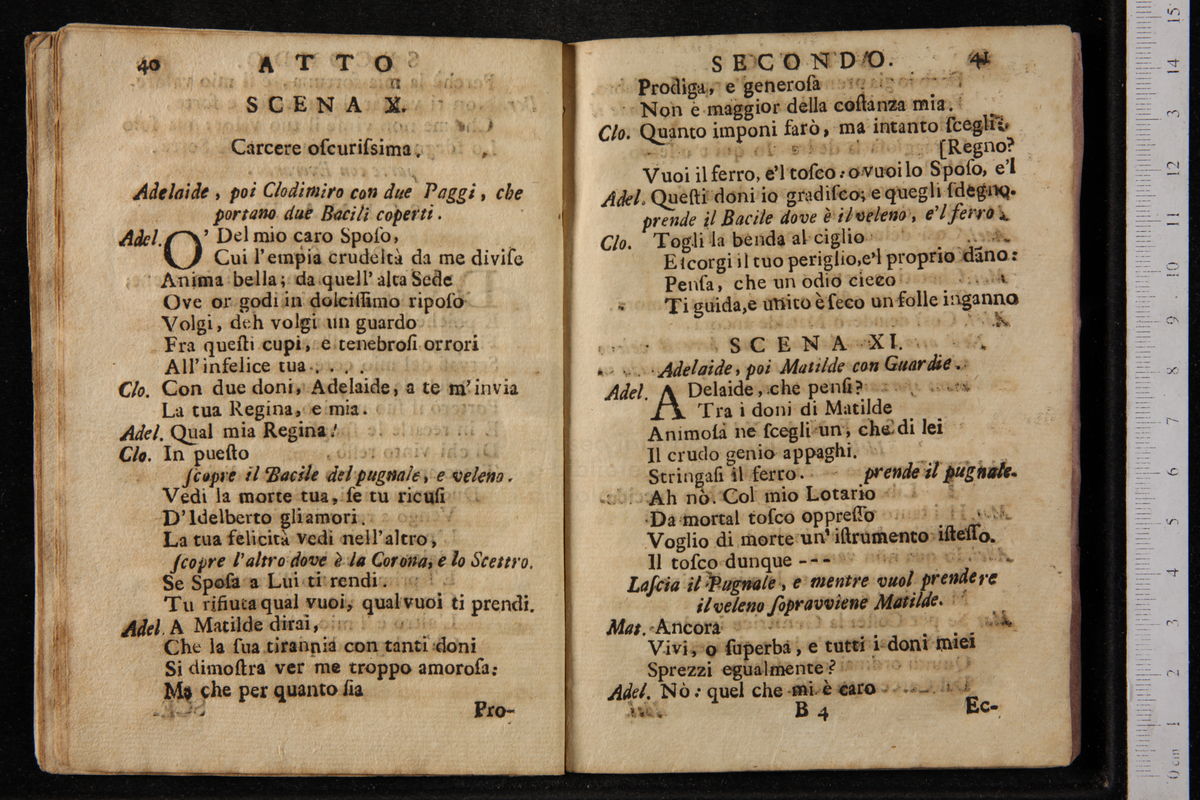 40 ATTO
SCENA X.
Carcere oſcuriſsima.
Adelaide, poi Clodimiro con due Paggi, che
portano due Bacili coperti.
Adel. O' Del mio caro Spoſo,
Cui l'empia crudeltà da me diviſe
Anima bella; da quell' alta Sede
Ove or godi in dolciſſimo ripoſo
Volgi, deh volgi un guardo
Fra queſti cupi, e tenebroſi orrori
All' infelice tua . . . .
Clo. Con due doni, Adelaide, a te m'invia
La tua Regina, e mia.
Adel. Qual mia Regina!
Clo. In pueſto
ſcopre il Bacile del pugnale, e veleno.
Vedi la morte tua, ſe tu ricuſi
D'Idelberto gli amori.
La tua felicità vedi nell'altro,
ſcopre l'altro dove è la Corona, e lo Scettro.
Se Spoſa a Lui ti rendi.
Tu rifiuta qual vuoi, qual vuoi ti prendi.
Adel. A Matilde dirai,
Che la ſua tirannia con tanti doni
Si dimoſtra ver me troppo amoroſa:
Ma che per quanto ſia
Pro-
SECONDO. 41
Prodiga, e generoſa
Non è maggior della coſtanza mia.
Clo. Quanto imponi farò, ma intanto ſcegli:
[Regno?
Vuoi il ferro, e'l toſco: o vuoi lo Spoſo, e'l
Adel. Queſti doni io gradiſco; e quegli ſdegno.
prende il Bacile dove è il veleno, e'l ferro.
Clo. Togli la benda al ciglio
E ſcorgi il tuo periglio, e'l proprio dāno:
Penſa, che un odio cieco
Ti guida, e unito è ſeco un folle inganno
SCENA XI.
Adelaide, poi Matilde con Guardie.
Adel. ADelaide, che penſi?
Tra i doni di Matilde
Animoſa ne ſcegli un, che di lei
Il crudo genio appaghi.
Stringaſi il ferro. prende il pugnale.
Ah nò. Col mio Lotario
Da mortal toſco oppreſſo
Voglio di morte un' iſtrumento iſteſſo.
Il toſco dunque ---
Laſcia il Pugnale, e mentre vuol prendere
il veleno ſopravviene Matilde.
Mat. Ancora
Vivi, o ſuperba, e tutti i doni miei
Sprezzi egualmente?
Adel. Nò: quel che mi è caro
B 4 Ec-
0 cm 1 2 3 4 5 6 7 8 9 10 11 12 13 14 15